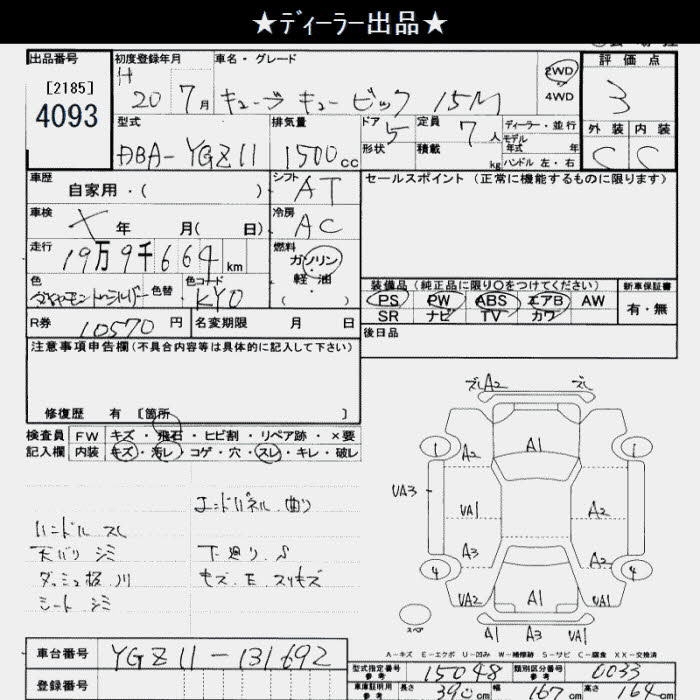 ★ディーラー出品★
出品番号
[2185]
4093
初度登録年月
H 20 年 7月
車名・グレード
キューブキュービック 15M
2WD
4WD
評価点
3
外装 内装
C C
型式
DBA-YGZ11
排気量
1500cc
ドア 5
形状
定員 7人
積載 kg
ディーラー・並行
モデル年式 年
ハンドル 左・右
車歴
自家用・( )
シフト AT
セールスポイント (正常に機能するものに限ります)
車検
× 年 月( 日)
冷房 AC
走行
19万9千664km
燃料
ガソリン
軽・油
( )
色
ダイヤモンドシルバー
色替
色コード
KY0
装備品 (純正品に限り○をつけてください)
新車保証書
PS PW ABS エアB AW
SR ナビ TV カワ
有・無
R券 10570円
名変期限 月 日
後日品
注意事項申告欄(不具合内容等は具体的に記入して下さい)
修復歴 有 [箇所 ]
検査員 FW キズ・飛石・ヒビ割・リペア跡・×要
記入欄 内装 キズ・汚レ・コゲ・穴・スレ・キレ・破レ
エンドパネル 曲り
ハンドル スレ
天バリ シミ
下廻り S
ダッシュ板 
キズ E スリキズ
シート シミ
ズレ A2 ズレ
1 A1 1
A2
UA3 UA1 A2
A3 A2
4 4
UA2 A1 UA1
スペア
A1 A3 UA1
A-キズ E-エクボ U-凹み W-補修跡 S-サビ C-腐食 XX-交換済
車台番号 YGZ11-131692
登録番号
型式指定番号 参考 15048
類別区分番号 参考 0033
車庫証明用 参考 長さ 390cm 幅 167cm 高さ 164cm